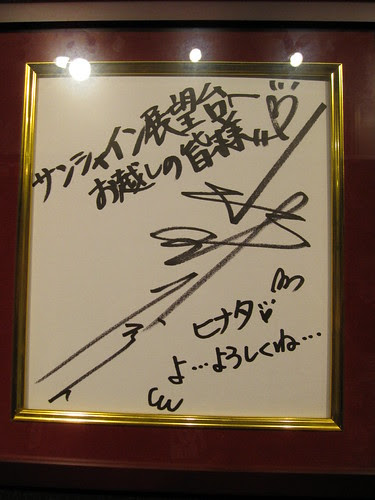 サンシャイン展望台へ
お越しの皆様
ヒナタ
よ…よろしくね…